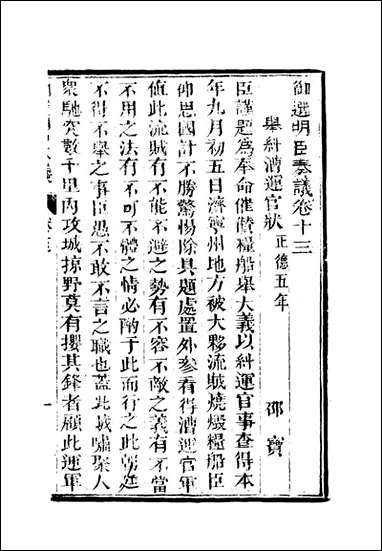 御選明臣奏議卷十三
舉糾漕運官狀 正德五年
邵寶
臣謹題為奉命催儹糧船舉大義以糾運官事查得本
年九月初五日濟寧州地方被大夥流賊燒燬糧船臣
仰思國計不勝驚惕除具題處置外參看得漕運官軍
値此流賊有不能不避之勢有不容不敵之義有不當
不用之法有不可不體之情必酌于此而行之此朝廷
不得不舉之事臣愚不敢不言之職也蓋此賊嘯聚人
衆馳突數千里內攻城掠野莫有攖其鋒者顧此運軍
一